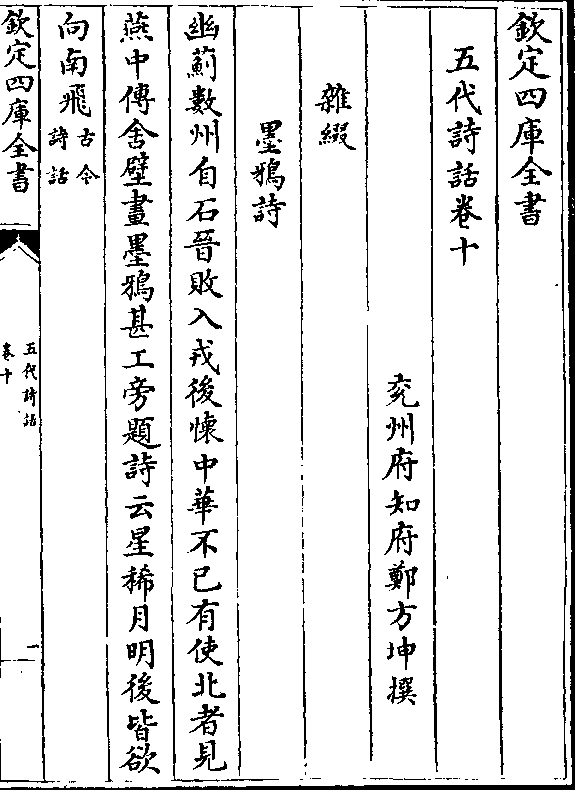 欽定四庫全書
五代詩話卷十
兖州府知府鄭方坤撰
雜綴
墨鴉詩
幽薊數州自石晉敗入戎後懷中華不已有使北者見
燕中傳舍壁畫墨鴉甚工旁題詩云星稀月明後皆欲
向南飛古今詩話
欽定四庫全書
五代詩話
卷十
一